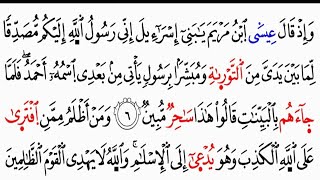 وَإِذْ قَالَ عِيسَى ابْنُ مَرْيَمَ يَـٰبَنِىٓ إِسْرَٰٓءِيلَ إِنِّى رَسُولُ ٱللَّهِ إِلَيْكُم مُّصَدِّقًا
لِّمَا بَيْنَ يَدَىَّ مِنَ ٱلتَّوْرَىٰةِ وَمُبَشِّرًۢا بِرَسُولٍ يَأْتِى مِنۢ بَعْدِى ٱسْمُهُۥٓ أَحْمَدُ ۖ فَلَمَّا
جَآءَهُم بِٱلْبَيِّنَـٰتِ قَالُوا۟ هَـٰذَا سَـٰحِرٌ مُّبِينٌ ۝٦ وَمَنْ أَظْلَمُ مِمَّنِ ٱفْتَرَىٰ
عَلَى ٱللَّهِ ٱلْكَذِبَ وَهُوَ يُدْعَىٰٓ إِلَى ٱلْإِسْلَـٰمِ ۚ وَٱللَّهُ لَا يَهْدِى ٱلْقَوْمَ ٱلظَّـٰلِمِينَ